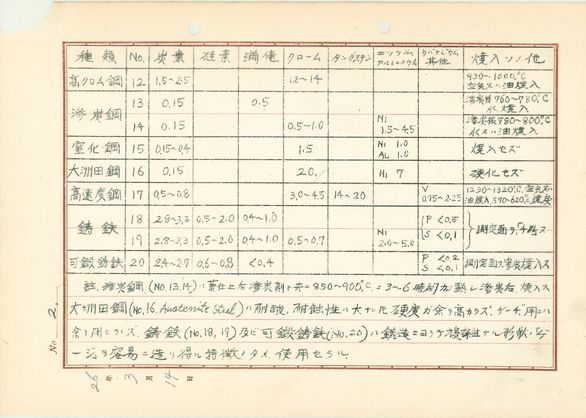 種類 No. 炭素 硅素 満俺 クローム タングステン ニッケル,アルミニウム バナヂウム其他 焼入ソノ他
高クロム鋼 12 1.5~2.5 12~14 930~1000°C 空気又ハ油焼入
滲炭鋼 13 0.15 0.5 滲炭後760~780°C 水焼入
14 0.15 0.5~1.0 Ni 1.5~4.5 滲炭後780~800°C 水又ハ油焼入
窒化鋼 15 0.15~0.4 1.5 Ni 1.0 AL 1.0 焼入セズ
大洲田鋼 16 0.15 20. Ni 7 硬化セズ
高速度鋼 17 0.5~0.8 3.0~4.5 14~20 V 0.75~2.25 1230~1320°C, 空気又ハ油焼入, 570~620°C 焼戻
鋳鉄 18 2.8~3.3 0.5~2.0 0.4~1.0 P <0.5 S <0.1 測定面ヲ
19 2.8~3.3 0.5~2.0 0.4~1.0 0.5~0.7 Ni 2.0~5.0
可鍛鋳鉄 20 2.4~2.7 0.6~0.8 <0.4 P <0.2 S <0.1 測定面ヲ滲炭焼入ス
註. 滲炭鋼 (No.13.14)ハ荒仕上后滲炭剤ト共ニ850~900°Cニ3~6時間加熱シ滲炭后焼入ス
大洲田鋼(No.16. Austenite Steel)ハ耐酸, 耐蝕性ハ大ナレド硬度ガ余リ高カラズ, ゲーヂ用ニハ
余リ用ヒラズ. 鋳鉄(No.18,19)及ビ可鍛鋳鉄(No.20)ハ鋳造ニヨリテ複雑ナル形状ノゲ
ージヲ容易ニ造リ得ル特徴ノタメ使用セラル
No. 2.
26年 3月 14日